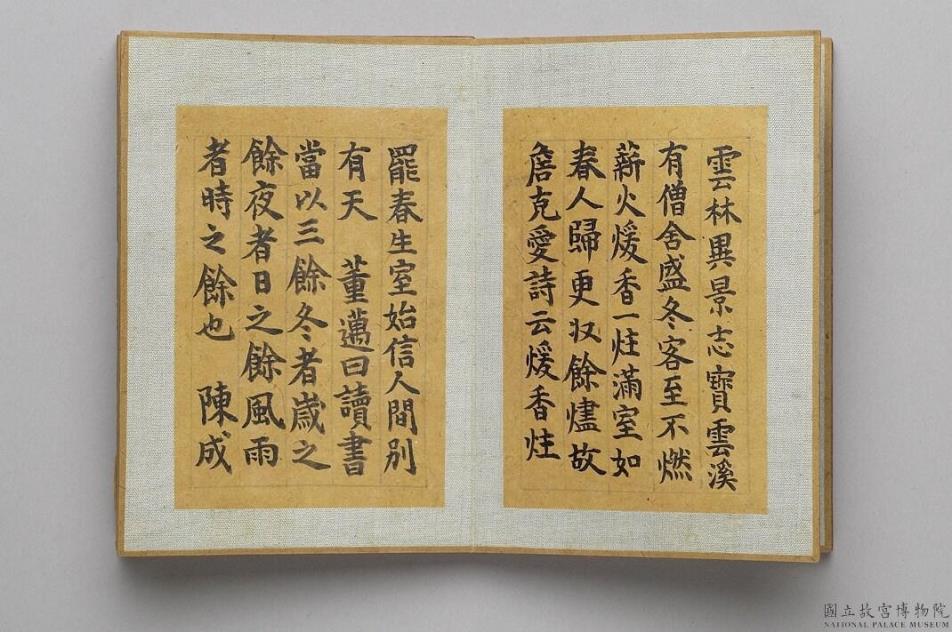 雲林異景志寶雲溪
有僧舍盛冬客至不燃
薪火煖香一炷滿室如
春人歸更収餘燼故
詹克愛詩云煖香炷
罷春生室始信人間別
有天　董遇曰讀書
當以三餘冬者歲之
餘夜者日之餘風雨
者時之餘也　陳成
國立故宮博物院
NATIONAL PALACE MUSEUM